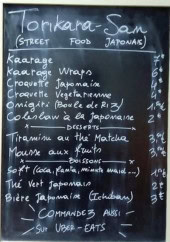 Torikara-San
(STREET FOOD JAPONAIS)
Kaarage 7€
Kaarage Wraps 6€
Croquette Japonaise €
Croquette Vegetarienne €
Onigiri (Boule de Riz) €
Coleslaw à la Japonaise 2€
DESSERTS
Tiramisu au thé Matcha €
Mousse aux fruits €
BOISSONS
Soft (coca, fanta, minute maid...) €
Thé Vert Japonais 2€
Bière Japonaise (Ichiban) 3€
COMMANDEZ AUSSI
SUR UBER-EATS